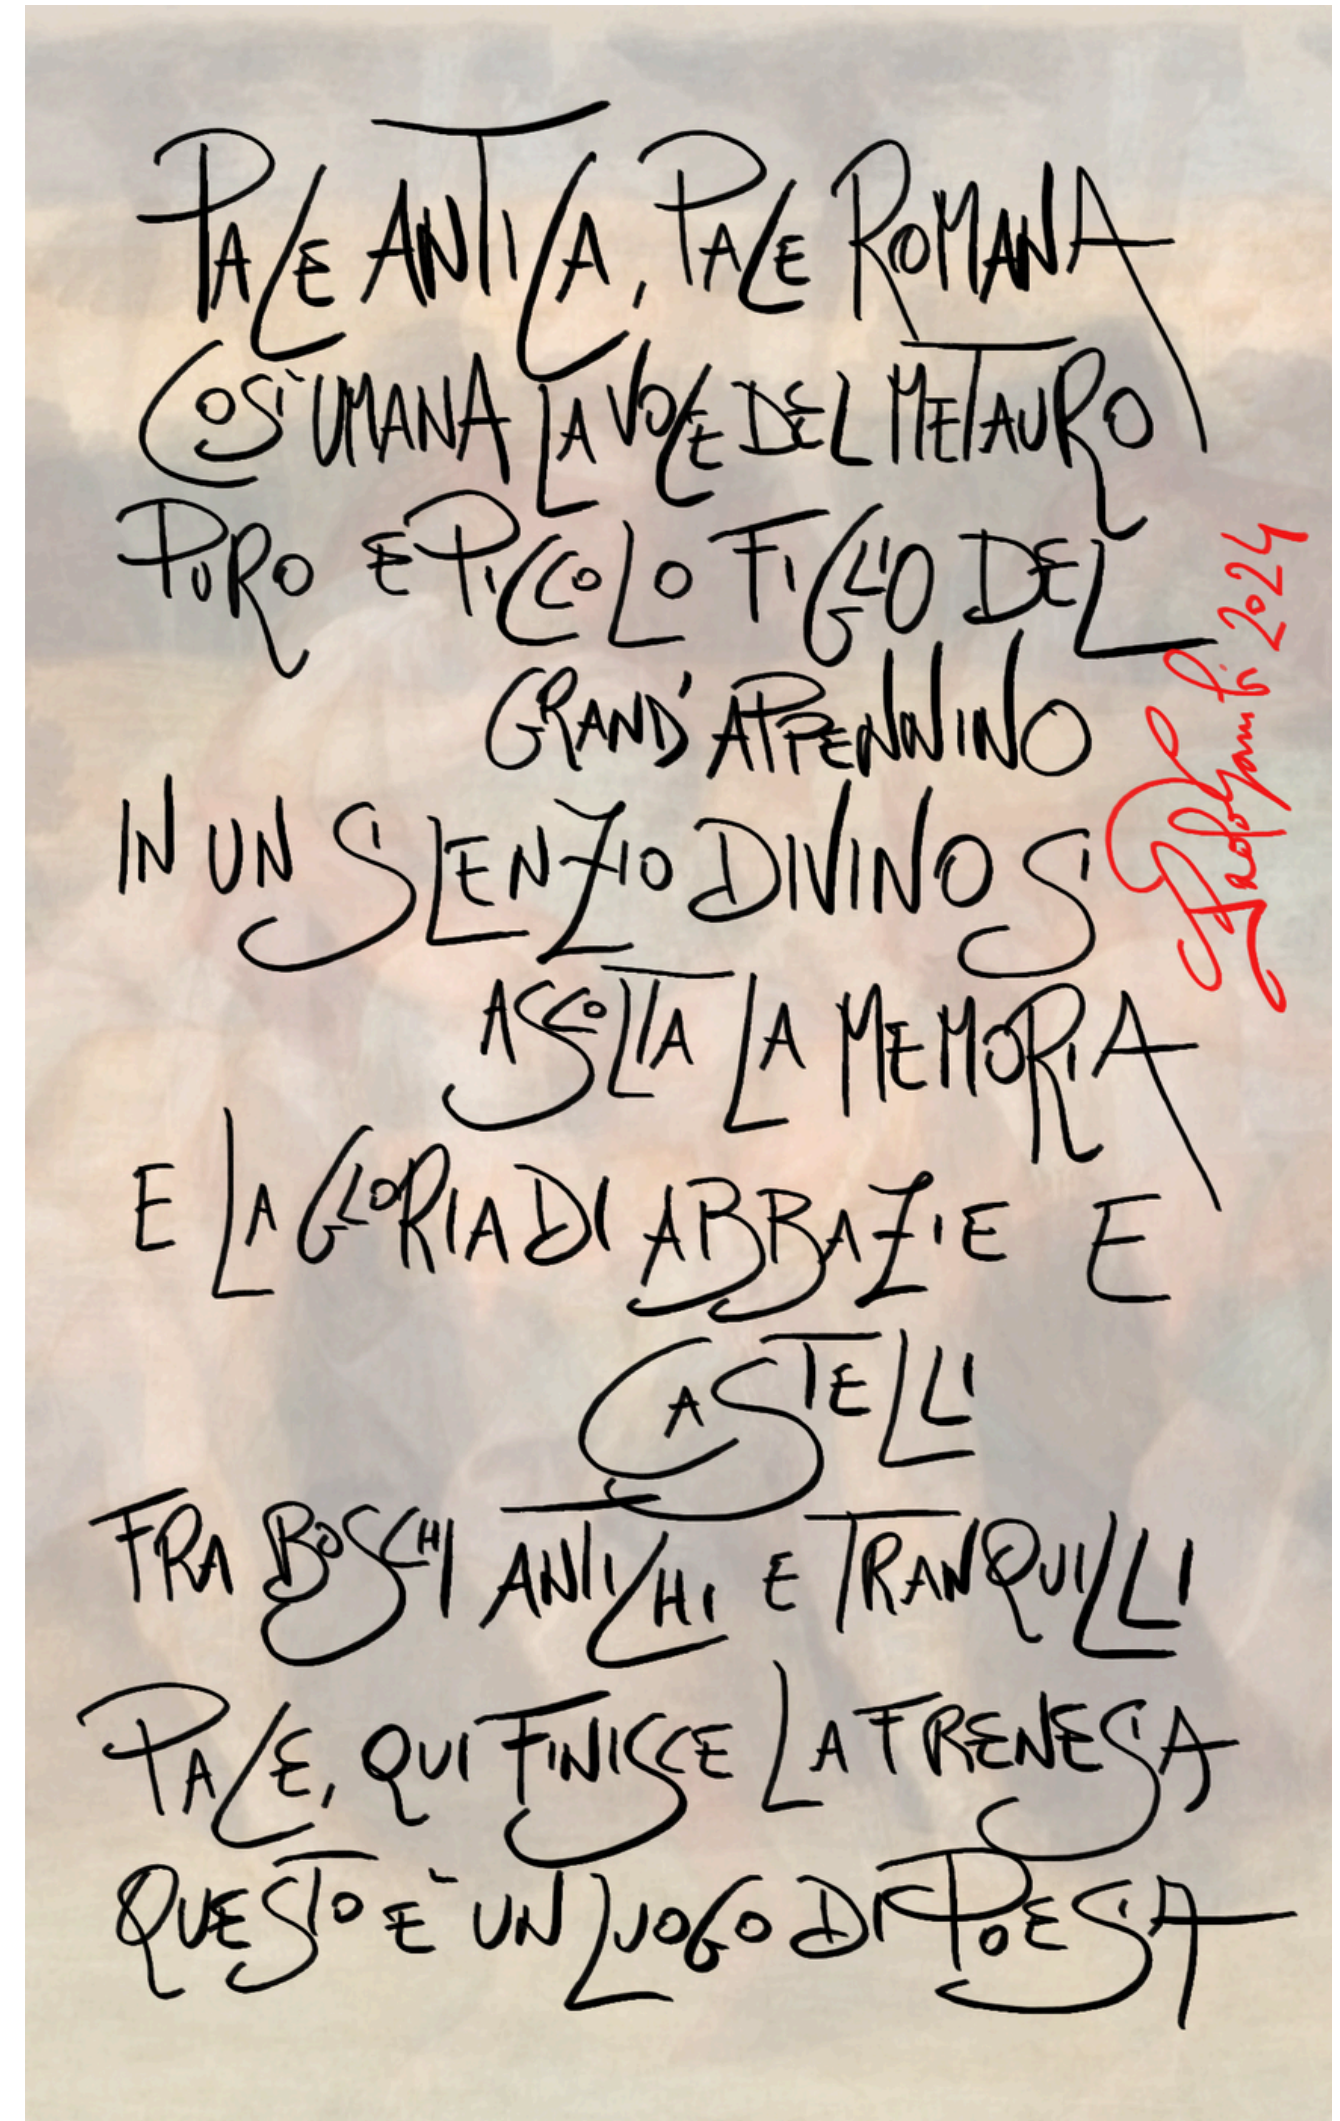 PACE ANTICA, PACE ROMANA
COSÌ UMANA LA VOCE DEL METAURO
PURO E PICCOLO FIGLIO DEL
GRAND' APPENNINO
IN UN SILENZIO DIVINO SI
ASCOLTA LA MEMORIA
E LA GLORIA DI ABBAZIE E
CASTELLI
FRA BOSCHI ANTICHI E TRANQUILLI
PACE, QUI FINISCE LA FRENESIA
QUESTO È UN LUOGO DI POESIA
2024